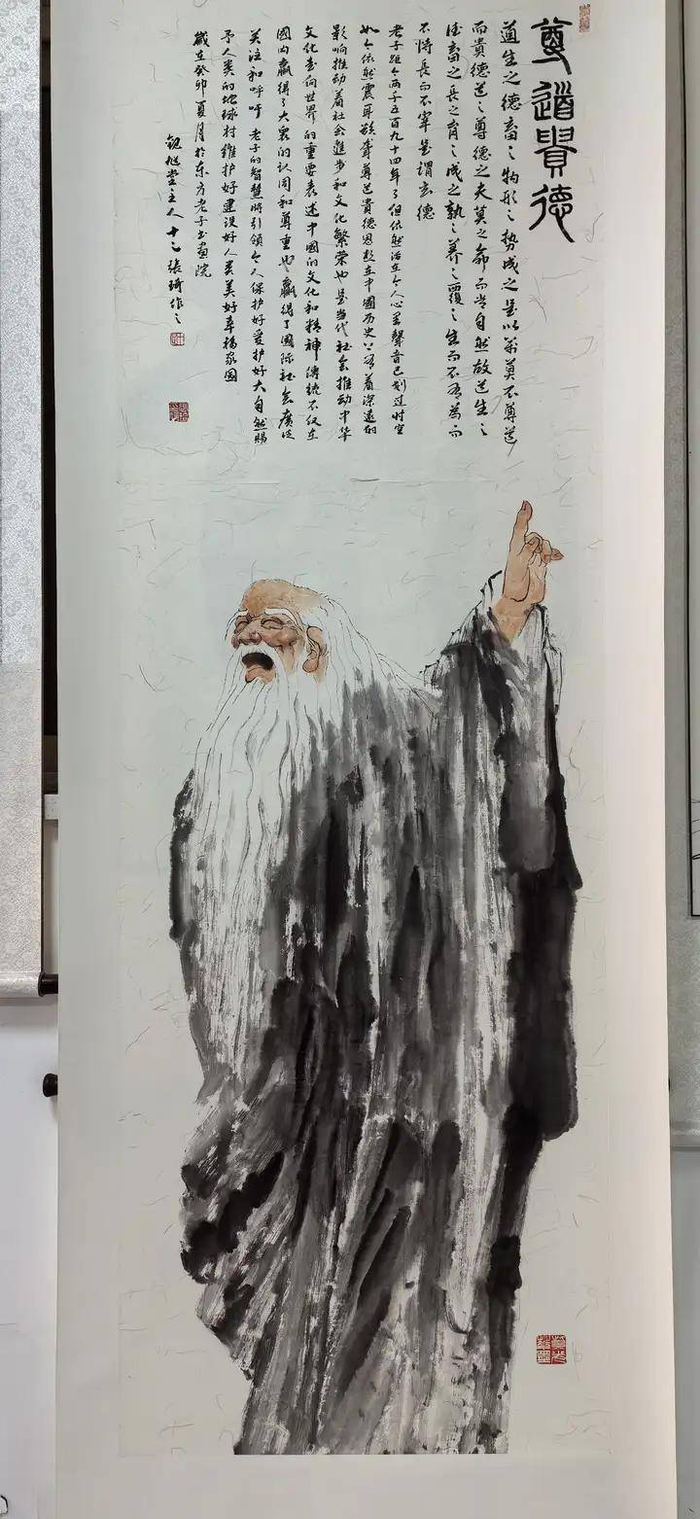 尊道贵德
道生之德畜之物形之势成之是以万莫不尊道
而貴德道之尊德之夫莫之命而常自然故道生之
德畜之長之育之成之熟之养之覆之生而不有為而
不恃長而不宰是謂玄德
老子距今两千五百九十四年了但依然活在今人心里聲音已划过时空
如今依然震耳欲聋尊道貴德思想在中國历史上有着深遠的
影响推动着社会進步和文化繁荣也是当代社会推动中华
文化走向世界的重要表述中國的文化和精神傳統不仅在
國内赢得了大衆的认同和尊重也赢得了國际社会廣泛
关注和呼吁老子的智慧將引领今人保护好爱护好大自然赐
予人类的地球村維护好建设好人类美好幸福家园
歲在癸卯夏月於东方老子书画院
观旭堂主人十之張琦作之